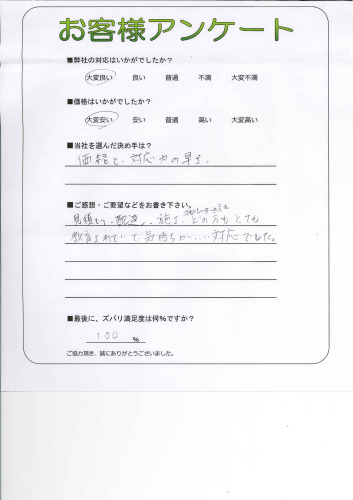 お客様アンケート
■弊社の対応はいかがでしたか?
大変良い 良い 普通 不満 大変不満
■価格はいかがでしたか?
大変安い 安い 普通 高い 大変高い
■当社を選んだ決め手は?
価格と、対応の早さ、
■ご感想・ご要望などをお書き下さい。
見積もり、配送、施工、どの方もとても
教育されていて気持ちがいい対応でした。
■最後に、ズバリ満足度は何%ですか?
100 %
ご協力頂き、誠にありがとうございました。